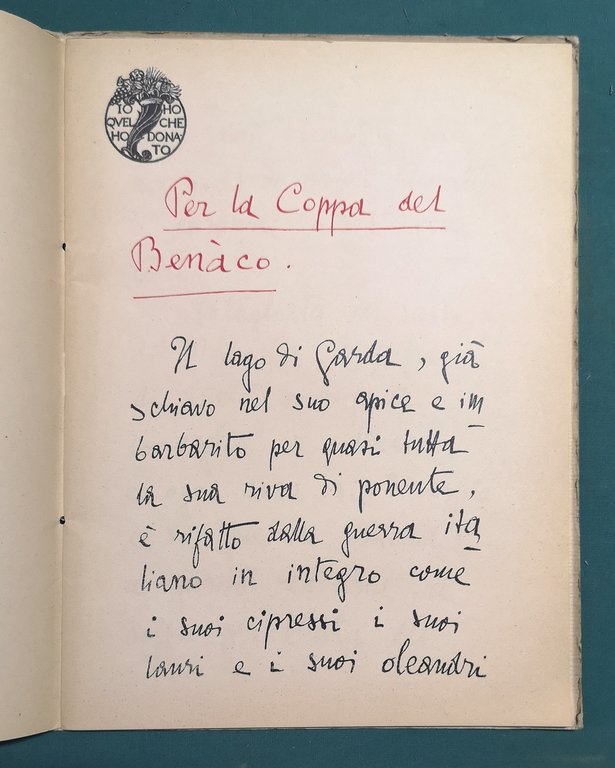 IO HO
QVEL CHE
HO DONA
TO
Per la Coppa del
Benàco.
Il lago di Garda, già
schiavo nel suo apice e im
barbarito per quasi tutta
la sua riva di ponente,
è rifatto dalla guerra ita
liano in integro come
i suoi cipressi i suoi
lauri e i suoi oleandri